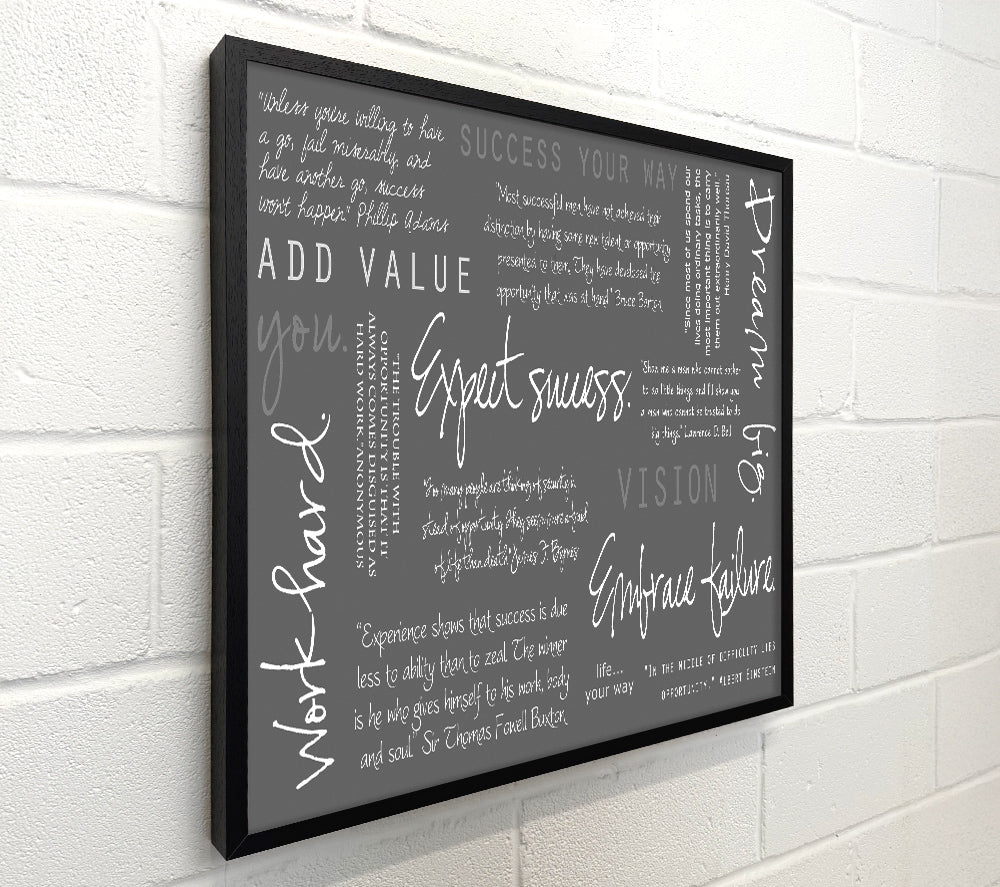 "Unless you're willing to have
a go, fail miserably, and
have another go, success
won't happen." Phillip Adams
SUCCESS YOUR WAY
"Most successful men have not achieved their
distinction by having some new talent or opportunity
presented to them. They have developed the
opportunity that was at hand." Bruce Barton
"Since most of us spend our
lives doing ordinary tasks, the
most important thing is to carry
them out extraordinarily well."
Henry David Thoreau
Dream big.
ADD VALUE
you.
"THE TROUBLE WITH
OPPORTUNITY IS THAT IT
ALWAYS COMES DISGUISED AS
HARD WORK." ANONYMOUS
Expect success.
"Show me a man who cannot
to so little things and I'll show you
a man who cannot be trusted to do
big things." Lawrence D. Bell
Work hard.
"Too many people are thinking of security
instead of opportunity. They seem more afraid
of life than death." James F. Byrnes
VISION
Embrace failure.
"Experience shows that success is due
less to ability than to zeal. The winner
is he who gives himself to his work, body
and soul." Sir Thomas Fowell Buxton
life...
your way
"IN THE MIDDLE OF DIFFICULTY LIES
OPPORTUNITY." ALBERT EINSTEIN